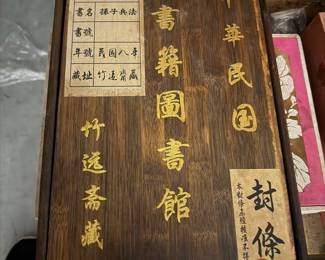 中華民国
書籍圖書館
竹远斋藏
書名 孫子兵法
書號
年號 民國八年
藏址 竹远斋藏
封條